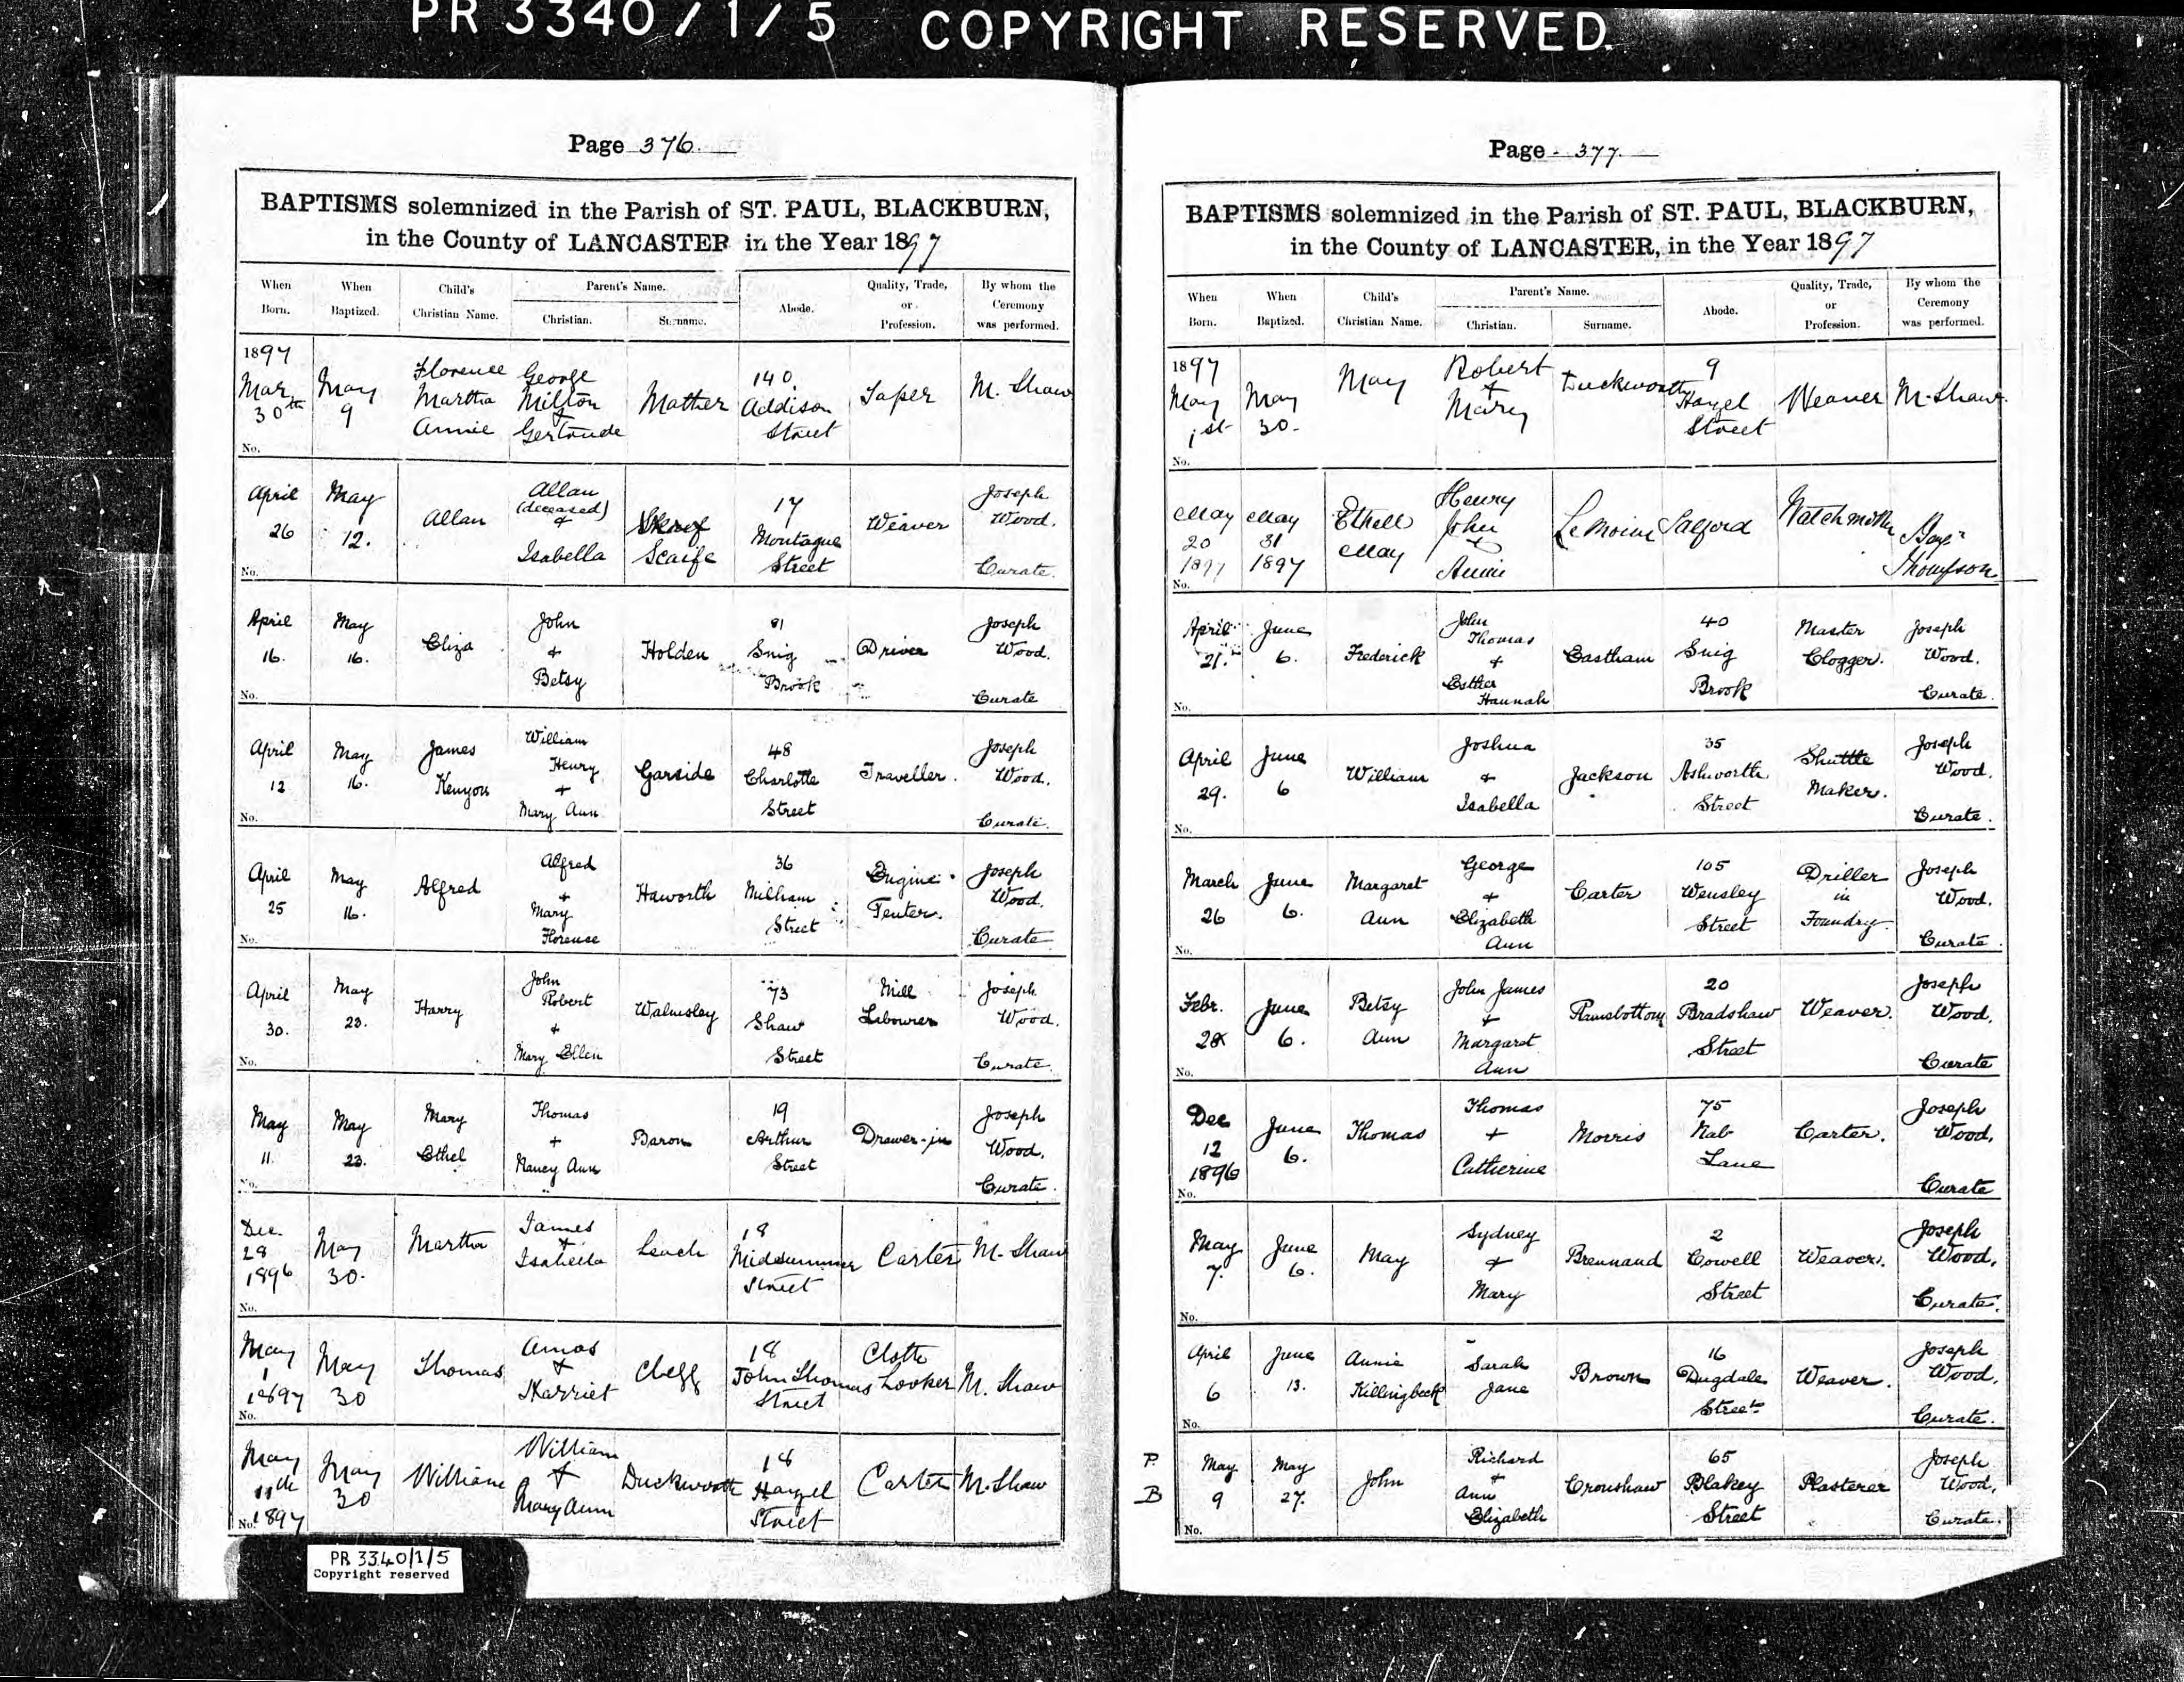 PR 3340/1/5 COPYRIGHT RESERVED.
Page 376.
BAPTISMS solemnized in the Parish of ST. PAUL, BLACKBURN,
in the County of LANCASTER in the Year 1897
When Born. When Baptized. Child's Christian Name. Parent's Name. Christian. Surname. Abode. Quality, Trade, or Profession. By whom the Ceremony was performed.
1897 Mar 30th May 9 Florence Martha Annie George Milton + Gertrude Mather 140 Addison Street Taper M. Shaw
No.
April 26 May 12. Allan Allan (deceased) + Isabella Scaife 17 Montague Street Weaver Joseph Wood. Curate.
No.
April 16. May 16. Eliza John + Betsy Holden 81 Snig Brook Driver Joseph Wood. Curate
No.
April 12 May 16. James Kenyon William Henry + Mary Ann Garside 48 Charlotte Street Traveller. Joseph Wood. Curate.
No.
April 25 May 16. Alfred Alfred + Mary Florense Haworth 36 Milham Street Engine Tenter. Joseph Wood. Curate
No.
April 30. May 23. Harry John Robert + Mary Ellen Walmsley 73 Shaw Street Mill Labourer Joseph Wood. Curate.
No.
May 11. May 23. Mary Ethel Thomas + Nancy Ann Baron 19 Arthur Street Drawer-in Joseph Wood. Curate.
No.
Dec. 28 1896 May 30. Martha James + Isabella Leach 18 Midsummer Street Carter M. Shaw
No.
May 1 1897 May 30 Thomas Amos + Harriet Clegg 18 John Thomas Street Cloth Looker M. Shaw
No.
May 11th 1897 May 30 William William + Mary Ann Duckworth 18 Hazel Street Carter M. Shaw
No.
PR 3340/1/5
Copyright reserved
Page 377.
BAPTISMS solemnized in the Parish of ST. PAUL, BLACKBURN,
in the County of LANCASTER, in the Year 1897
When Born. When Baptized. Child's Christian Name. Parent's Name. Christian. Surname. Abode. Quality, Trade, or Profession. By whom the Ceremony was performed.
1897 May 1st May 30. May Robert + Mary Duckworth 9 Hazel Street Weaver M. Shaw
No.
May 20 1897 May 31 1897 Ethell May Henry John + Annie Le Moine Salford Thompson
No.
April 21. June 6. Frederick John Thomas + Esther Hannah Eastham 40 Snig Brook Master Clogger. Joseph Wood. Curate.
No.
April 29. June 6 William Joshua + Isabella Jackson 35 Ashworth Street Shuttle Maker. Joseph Wood. Curate.
No.
March 26 June 6. Margaret Ann George + Elizabeth Ann Carter 105 Wensley Street Driller in Foundry. Joseph Wood. Curate.
No.
Febr. June 6. Betsy Ann John James + Margaret Ann Ramsbottom 20 Bradshaw Street Weaver. Joseph Wood. Curate
No.
Dec 12 1896 June 6. Thomas Thomas + Catherine Morris 75 Nab Lane Carter. Joseph Wood, Curate
No.
May 7. June 6. May Sydney + Mary Brennand 2 Cowell Street Weaver. Joseph Wood, Curate.
No.
April 6 June 13. Annie Killingbeck Sarah Jane Brown 16 Dugdale Street Weaver. Joseph Wood, Curate.
No.
P. B May 9 May 27. John Richard + Ann Elizabeth Cronshaw 65 Blakey Street Plasterer Joseph Wood, Curate.
No.